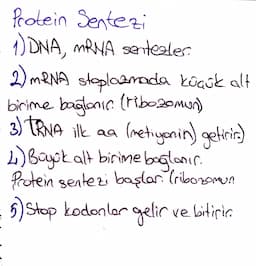 Protein Sentezi
1) DNA, mRNA sentezler.
2) mRNA stoplazmada küçük alt
birime bağlanır. (ribozomun)
3) TRNA ilk aa (metiyonin) getirir.)
4) Büyük alt birime bağlanır.
Protein sentezi başlar. (ribozomun
5) Stop kodonlar gelir ve bitirir.